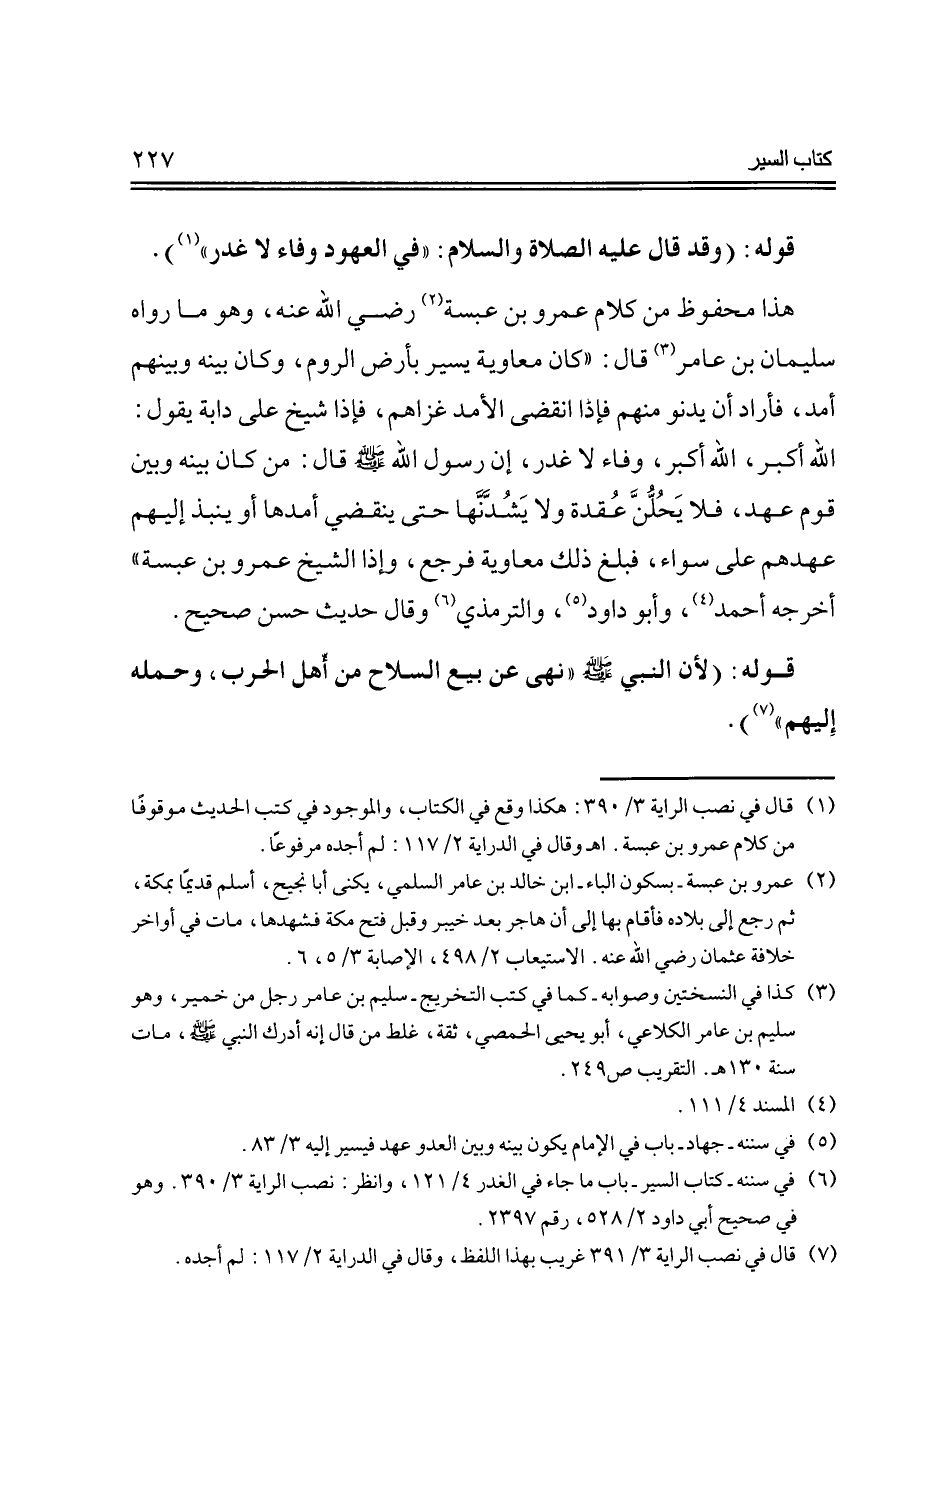 كتاب السير ٢٢٧
قوله: (وقد قال عليه الصلاة والسلام: «في العهود وفاء لا غدر»(١)).
هذا محفوظ من كلام عمرو بن عبسة(٢) رضي الله عنه، وهو ما رواه
سليمان بن عامر(٣) قال: «كان معاوية يسير بأرض الروم، وكان بينه وبينهم
أمد، فأراد أن يدنو منهم فإذا انقضى الأمد غزاهم، فإذا شيخ على دابة يقول:
الله أكبر، الله أكبر، وفاء لا غدر، إن رسول الله ﷺ قال: من كان بينه وبين
قوم عهد، فلا يَحُلُّنَّ عُقدة ولا يَشُدَّنَّها حتى ينقضي أمدها أو ينبذ إليهم
عهدهم على سواء، فبلغ ذلك معاوية فرجع، وإذا الشيخ عمرو بن عبسة»
أخرجه أحمد(٤)، وأبو داود(٥)، والترمذي(٦) وقال حديث حسن صحيح.
قوله: (لأن النبي ﷺ «نهى عن بيع السلاح من أهل الحرب، وحمله
إليهم»(٧)).
(١) قال في نصب الراية ٣/ ٣٩٠: هكذا وقع في الكتاب، والموجود في كتب الحديث موقوفًا
من كلام عمرو بن عبسة. اهـ وقال في الدراية ٢/ ١١٧: لم أجده مرفوعًا.
(٢) عمرو بن عبسة ـ بسكون الباء ـ ابن خالد بن عامر السلمي، يكنى أبا نجيح، أسلم قديمًا بمكة،
ثم رجع إلى بلاده فأقام بها إلى أن هاجر بعد خيبر وقبل فتح مكة فشهدها، مات في أواخر
خلافة عثمان رضي الله عنه. الاستيعاب ٢/ ٤٩٨، الإصابة ٣/ ٥، ٦.
(٣) كذا في النسختين وصوابه ـ كما في كتب التخريج ـ سليم بن عامر رجل من خمير، وهو
سليم بن عامر الكلاعي، أبو يحيى الحمصي، ثقة، غلط من قال إنه أدرك النبي ﷺ، مات
سنة ١٣٠هـ. التقريب ص٢٤٩.
(٤) المسند ٤/ ١١١.
(٥) في سننه ـ جهاد ـ باب في الإمام يكون بينه وبين العدو عهد فيسير إليه ٣/ ٨٣.
(٦) في سننه ـ كتاب السير ـ باب ما جاء في الغدر ٤/ ١٢١، وانظر: نصب الراية ٣/ ٣٩٠. وهو
في صحيح أبي داود ٢/ ٥٢٨، رقم ٢٣٩٧.
(٧) قال في نصب الراية ٣/ ٣٩١ غريب بهذا اللفظ، وقال في الدراية ٢/ ١١٧: لم أجده.